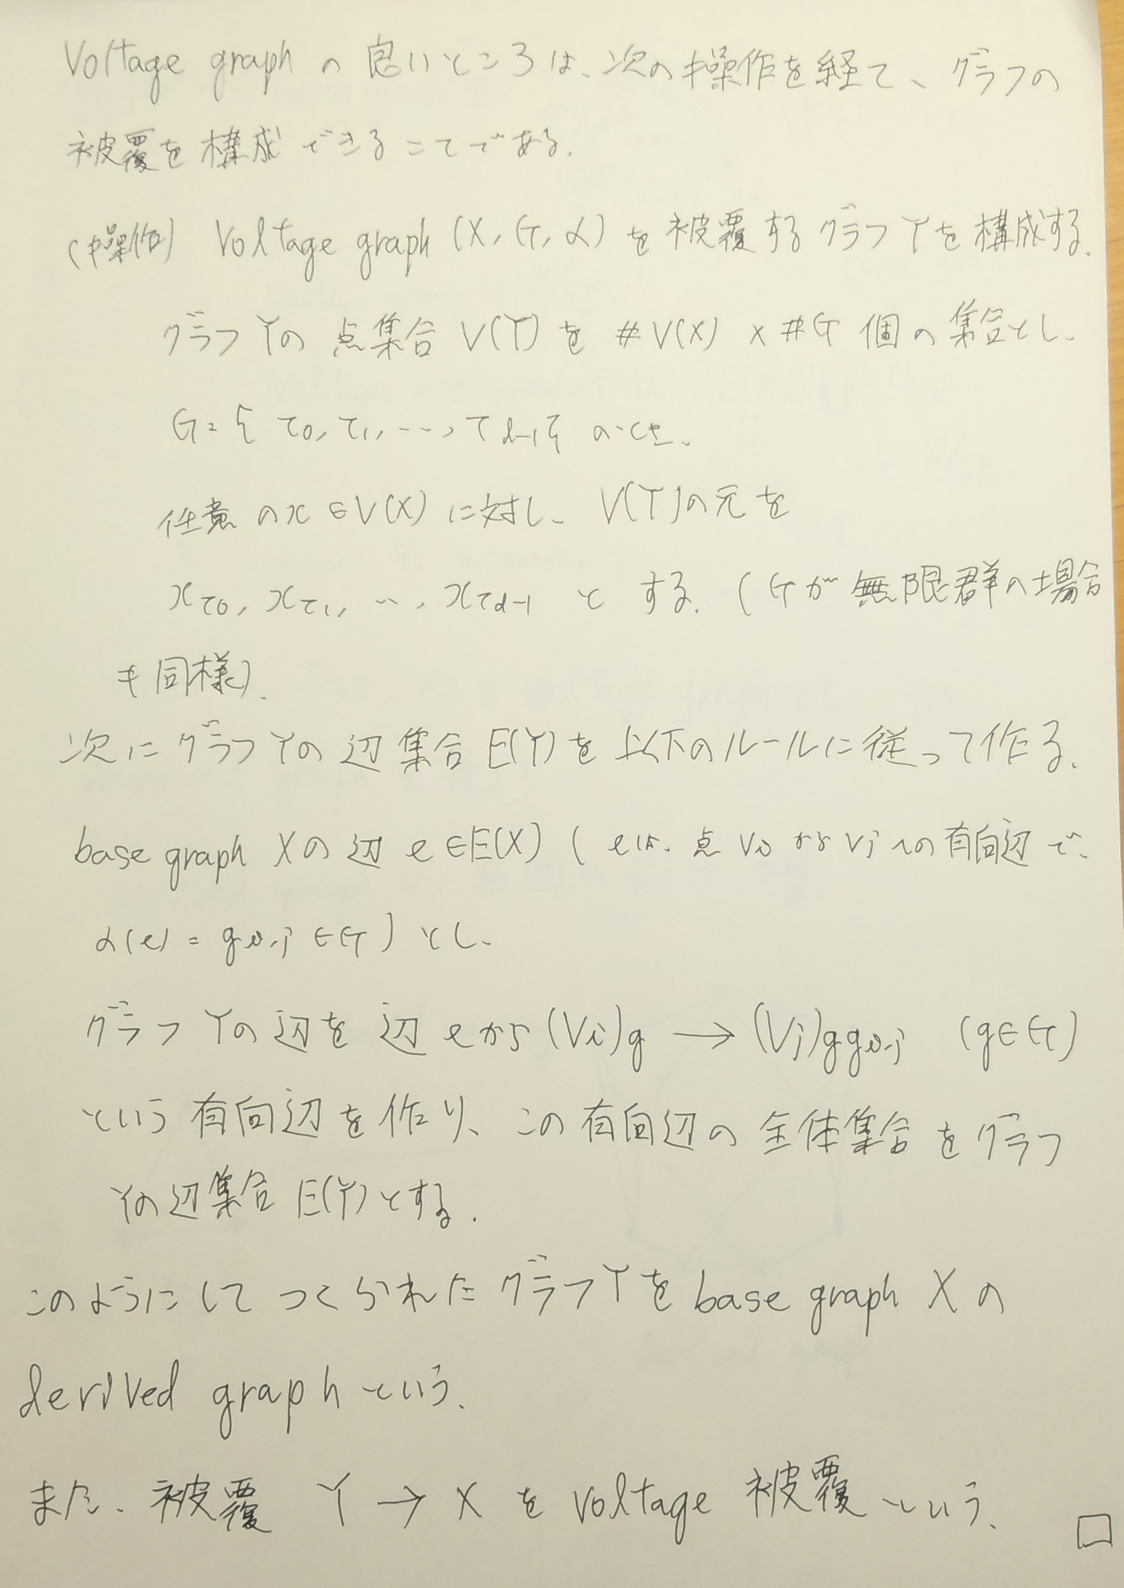 Voltage graph の良いところは、次の操作を経て、グラフの
被覆を構成できることである.
(操作) Voltage graph (X, G, α) を被覆するグラフ Y を構成する.
グラフ Y の 点集合 V(Y) を #V(X) × #G 個の集合とし、
G = { τ0, τ1, ..., τd-1 } のとき、
任意の x ∈ V(X) に対し、 V(Y) の元を
xτ0, xτ1, ..., xτd-1 とする. ( G が 無限群の場合
も同様).
次に グラフ Y の 辺集合 E(Y) を 以下のルールに従って作る.
base graph X の 辺 e ∈ E(X) ( e は、点 Vi から Vj への有向辺で、
α(e) = gi,j ∈ G ) とし、
グラフ Y の辺を 辺 e から (Vi)g → (Vj)ggi,j (g ∈ G)
という有向辺を作り、この有向辺の全体集合をグラフ
Y の辺集合 E(Y) とする.
このようにして つくられたグラフ Y を base graph X の
derived graph という.
また、被覆 Y → X を voltage 被覆という. □